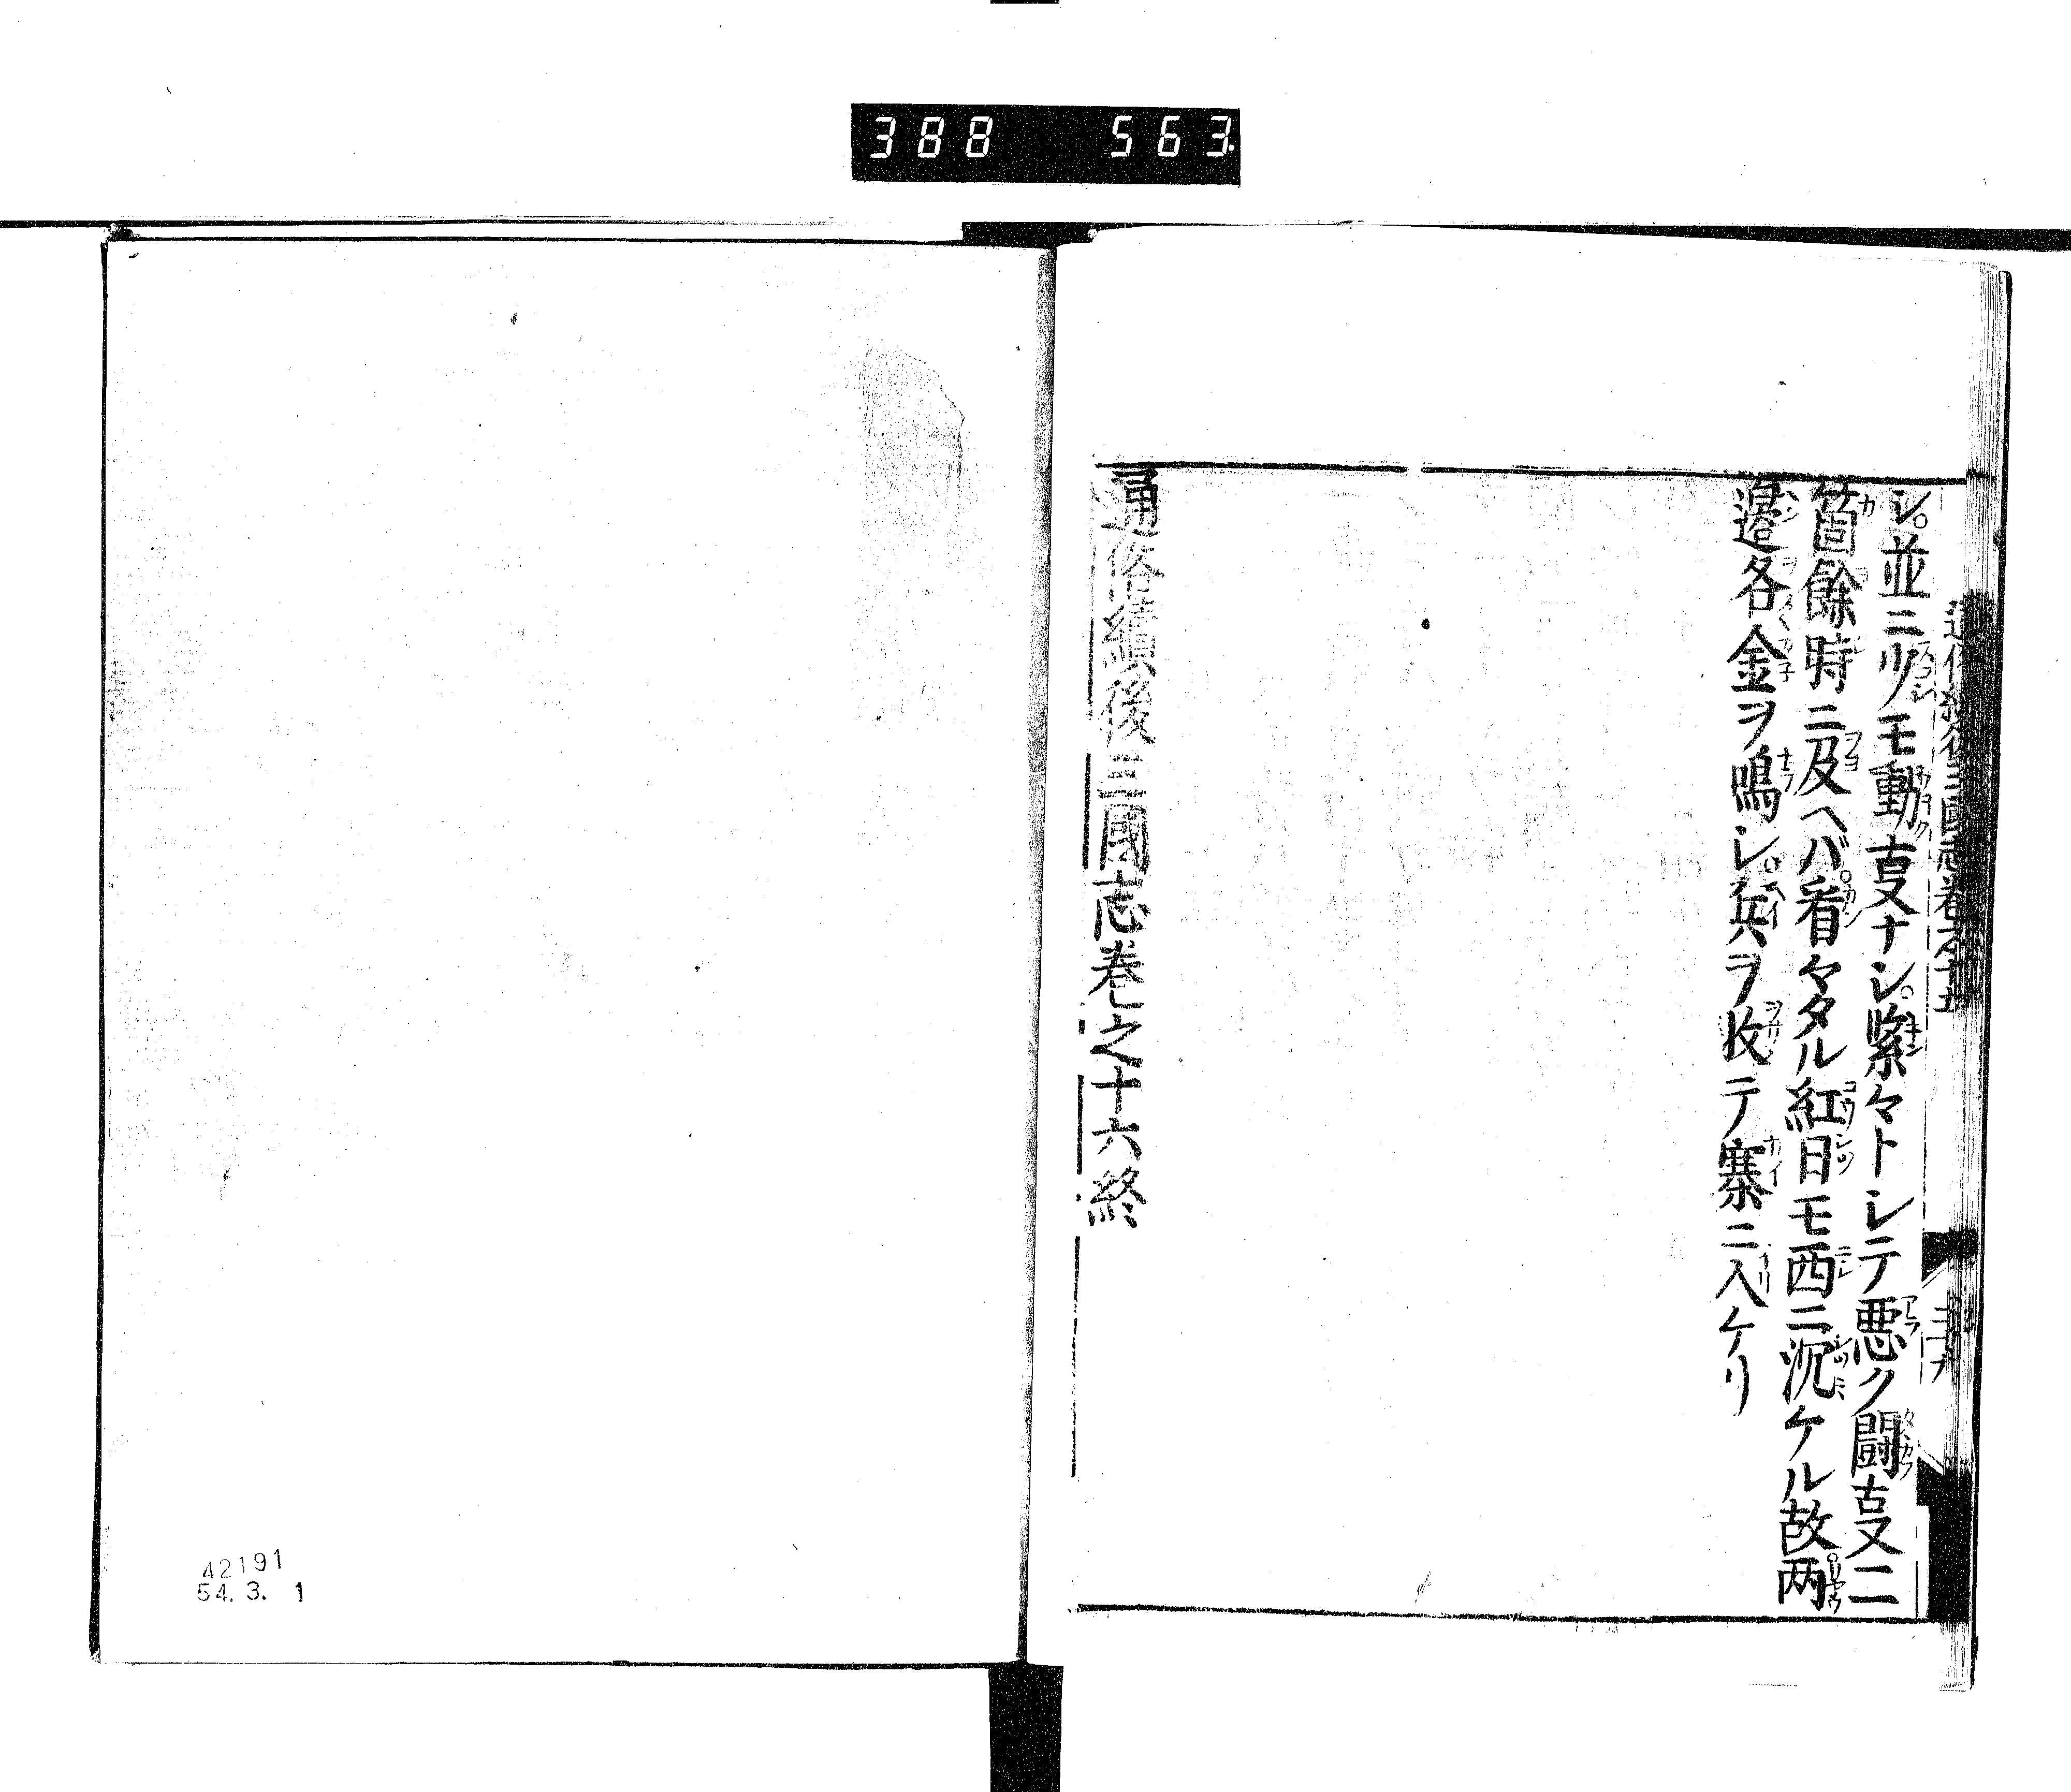 388 563
シ。並ニツモ動叓ナシ。緊々トシテ悪ク闘叓二
箇餘時ニ及ヘバ。看々タル紅日モ西ニ沉ケル故。両
邉各金ヲ鳴シ。兵ヲ收テ寨ニ入ケリ
通俗續後三國志巻之十六終
42191
54.3.1